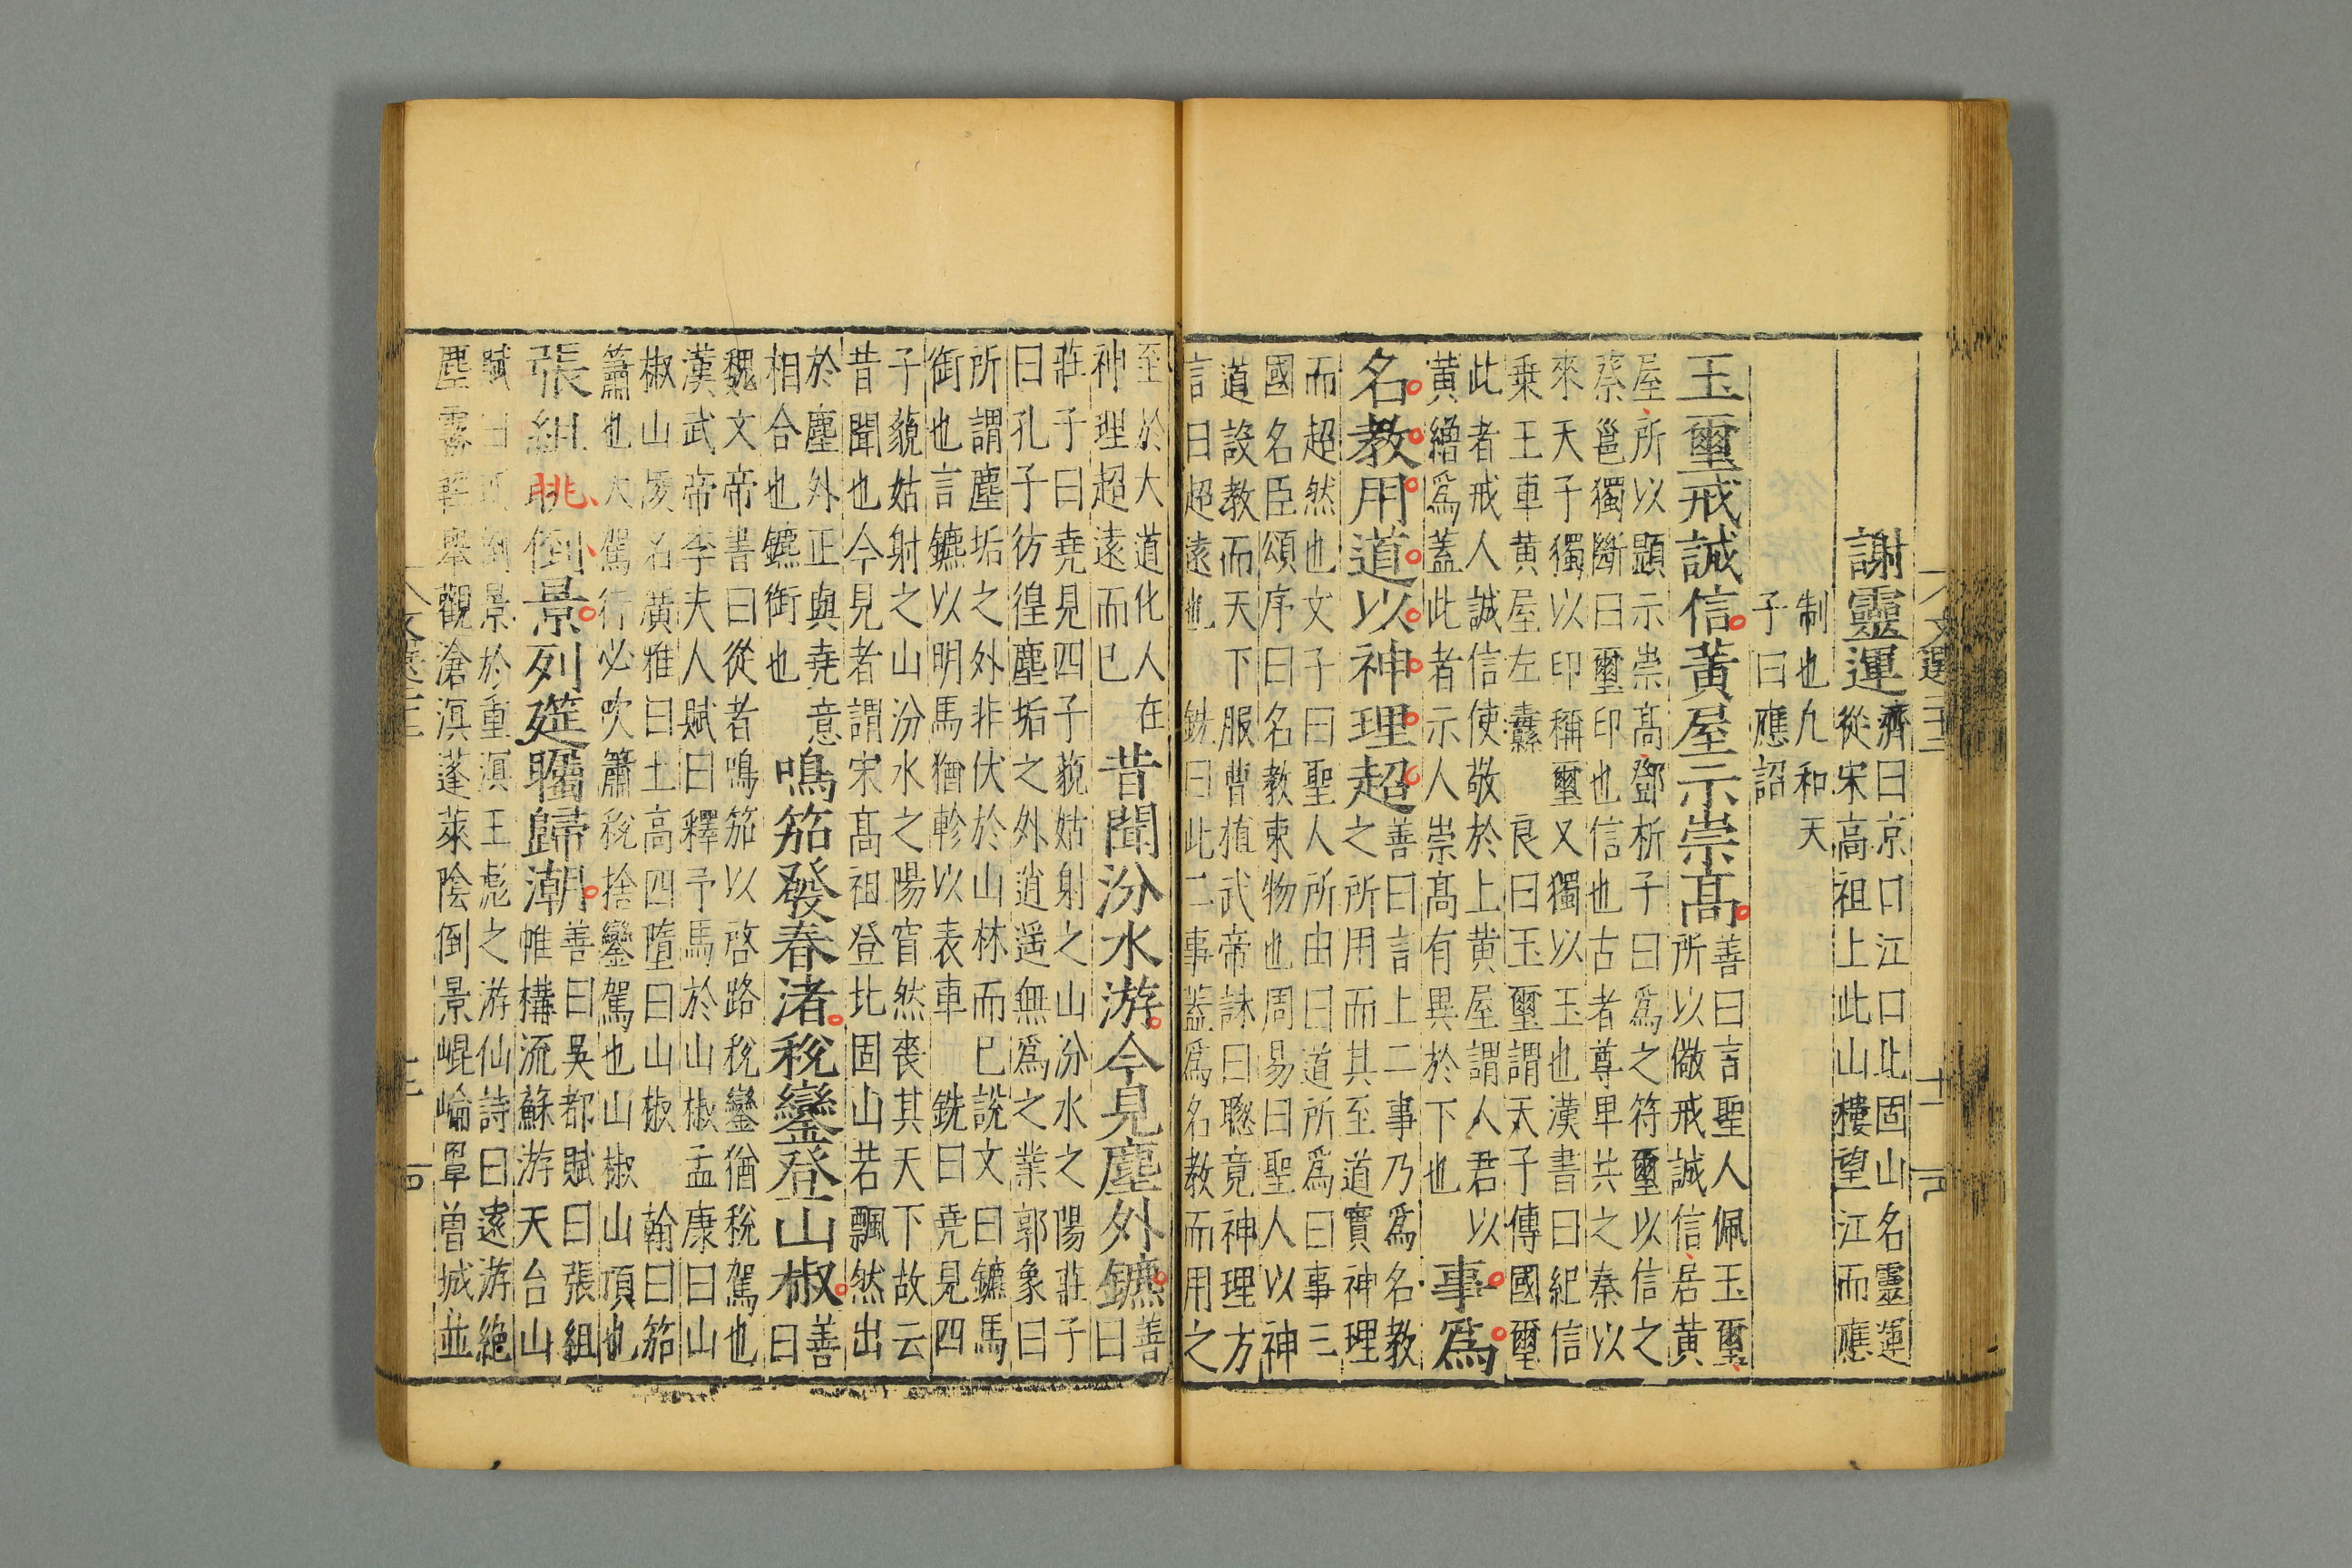 謝靈運
濟曰京口江口北固山名靈運
從宋高祖上此山樓望江而應
制也九和天
子曰應詔
玉璽戒誠信黃屋示崇髙
善曰言聖人佩玉璽
所以儆戒誠信居黃
屋所以顯示崇髙鄧析子曰爲之符璽以信之
蔡邕獨斷曰璽印也信也古者尊卑共之秦以
來天子獨以印稱璽又獨以玉也漢書曰紀信
乗王車黄屋左纛 良曰玉璽謂天子傳國璽
此者戒人誠信使敬於上黄屋謂人君以
黄繒爲蓋此者示人崇髙有異於下也
事爲
名教用道以神理超
善曰言上二事乃爲名教
之所用而其至道實神理
而超然也文子曰聖人所由曰道所爲曰事三
國名臣頌序曰名教束物也周易曰聖人以神
道設教而天下服曹植武帝誄曰聦竟神理方
言曰超遠也 銑曰此二事蓋爲名教而用之
至於大道化人在
神理超遠而已
昔聞汾水游今見塵外鑣
善
曰
莊子曰堯見四子藐姑射之山汾水之陽莊子
曰孔子彷徨塵垢之外逍遥無爲之業郭象曰
所謂塵垢之外非伏於山林而已說文曰鑣馬
銜也言鑣以明馬猶軫以表車 銑曰堯見四
子藐姑射之山汾水之陽窅然喪其天下故云
昔聞也今見者謂宋髙祖登北固山若飄然出
於塵外正與堯意
相合也鑣銜也
鳴笳發春渚稅鑾登山椒
善
曰
魏文帝書曰從者鳴笳以啓路稅鑾猶稅駕也
漢武帝李夫人賦曰釋予馬於山椒孟康曰山
椒山陵名廣雅曰土高四墮曰山椒 翰曰笳
簫也大駕行必吹簫稅捨鑾駕也山椒山頂也
張組眺倒景列筵矚歸潮
善曰吳都賦曰張組
帷構流蘇游天台山
賦曰倒景於重溟王彪之游仙詩曰遠游絶
塵霧輕舉觀滄溟蓬萊陰倒景崐崘罩曾城並